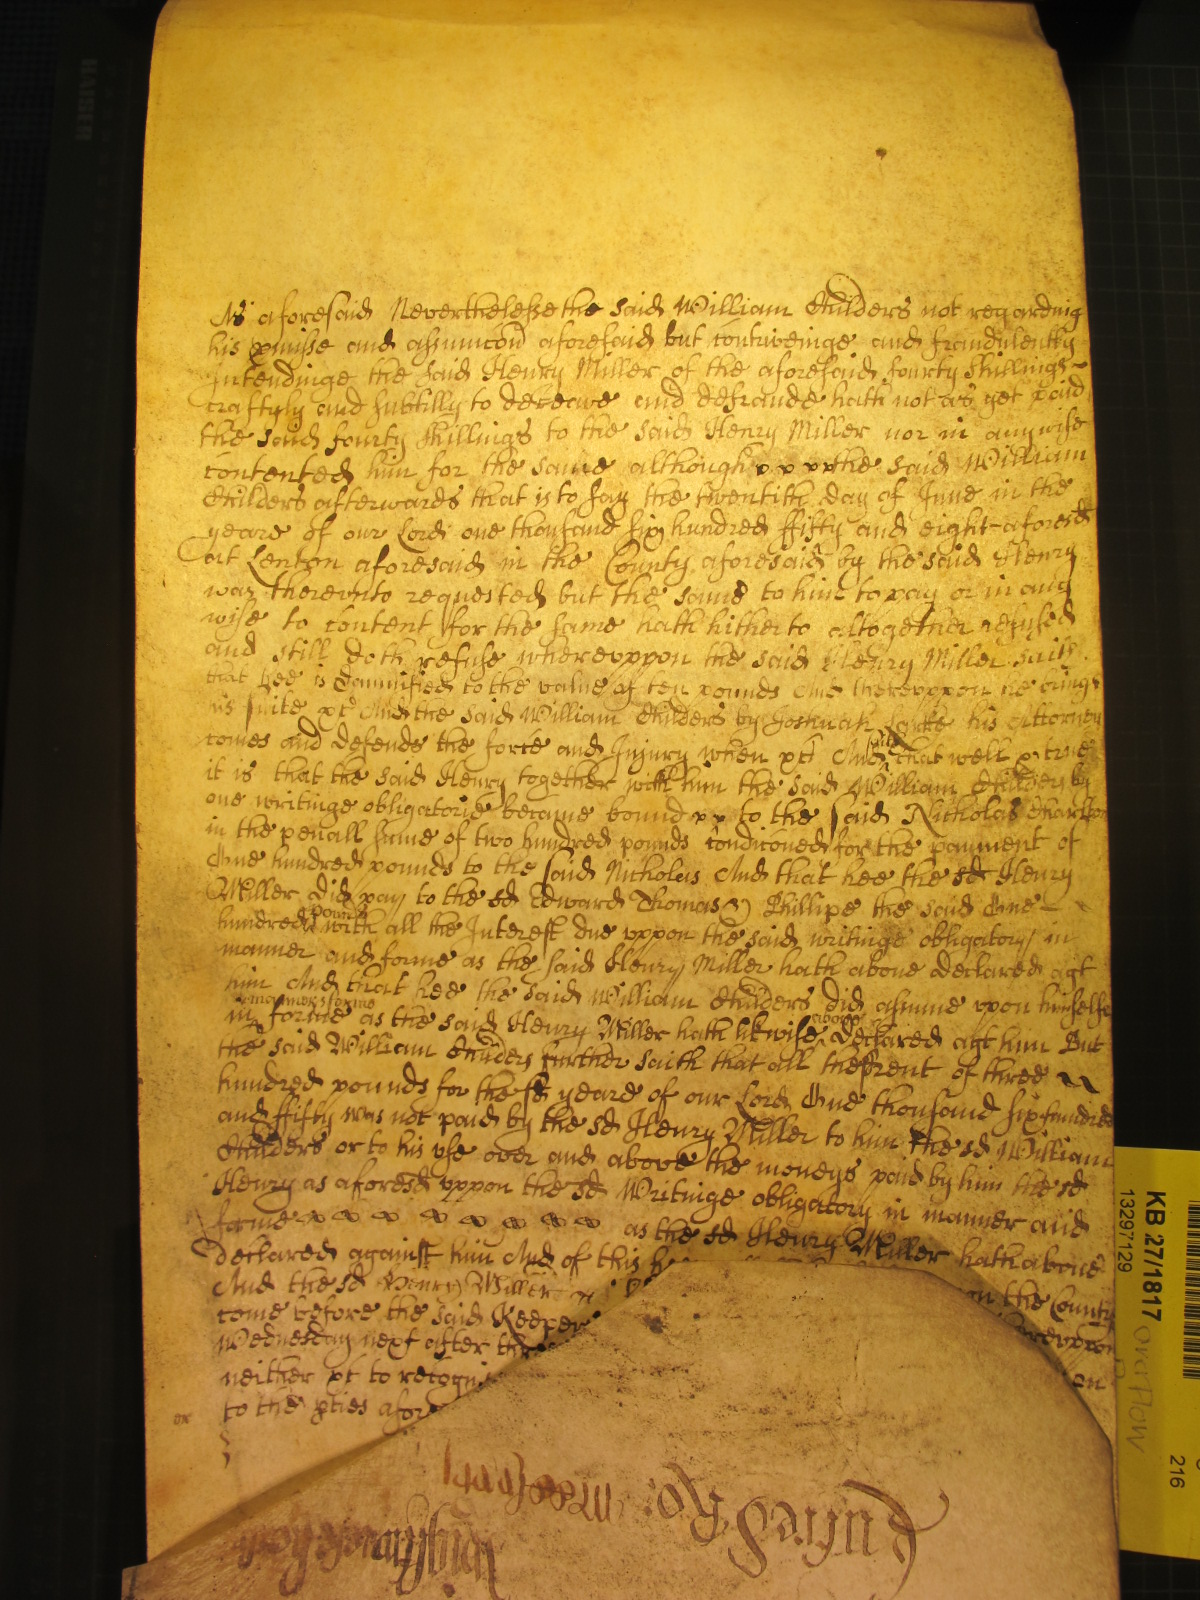 As aforesaid Neverthelesse the said William Childers not regarding
his pmisse and assumcon aforesaid but contriveinge and fraudulently
intendinge the said Henry Miller of the aforesaid fourty shillings
craftyly and subtilly to deceave and defraude hath not as yet paid
the said fourty shillings to the said Henry Miller nor in any wise
contented him for the same although the said William
Childers afterwards that is to say the twentith day of June in the
yeare of our Lord one thousand six hundred ffifty and eight aforesd
at Lenton aforesaid in the County aforesaid by the said Henry
was therevnto requested but the same to him to pay or in any
wise to content for the same hath hitherto altogether refused
and still doth refuse wherevppon the said Henry Miller saith
that hee is damnified to the value of ten pounds And therevppon he brings
his suite &c And the said William Childers by Joshuah his Attorney
comes and defends the force and Injury when &c And saith that well & true
it is that the said Henry together with him the said William Childers by
one writinge obligatorie became bound to the said Nicholas Charlton
in the penall sume of two hundred pounds condiconed for the payment of
One hundred pounds to the said Nicholas And that hee the sd Henry
Miller did pay to the sd Edward Thomas Phillipe the said One
hundred pounds with all the Interest due vppon the said writinge obligatory in
manner and forme as the said Henry Miller hath above declared agt
him And that hee the said William Childers did assume vpon himselfe
in manner & forme as the said Henry Miller hath likwise above declared agt him But
the said William Childers further saith that all the rent of three
hundred pounds for the sd yeare of our Lord One thousand six hundred
and ffifty was not paid by the sd Henry Miller to him the sd William
Childers or to his vse over and above the moneys paid by him the sd
Henry as aforesd vppon the sd Writinge obligatory in manner and
forme as the sd Henry Miller hath above
declared against him And of this he
And the sd Henry Miller the County
come before the said Keepers wherevppon
Wednesday next after the
neither &c to recogni
to the pties afor
KB 27/1817
13297129
overflow
216
HAISER